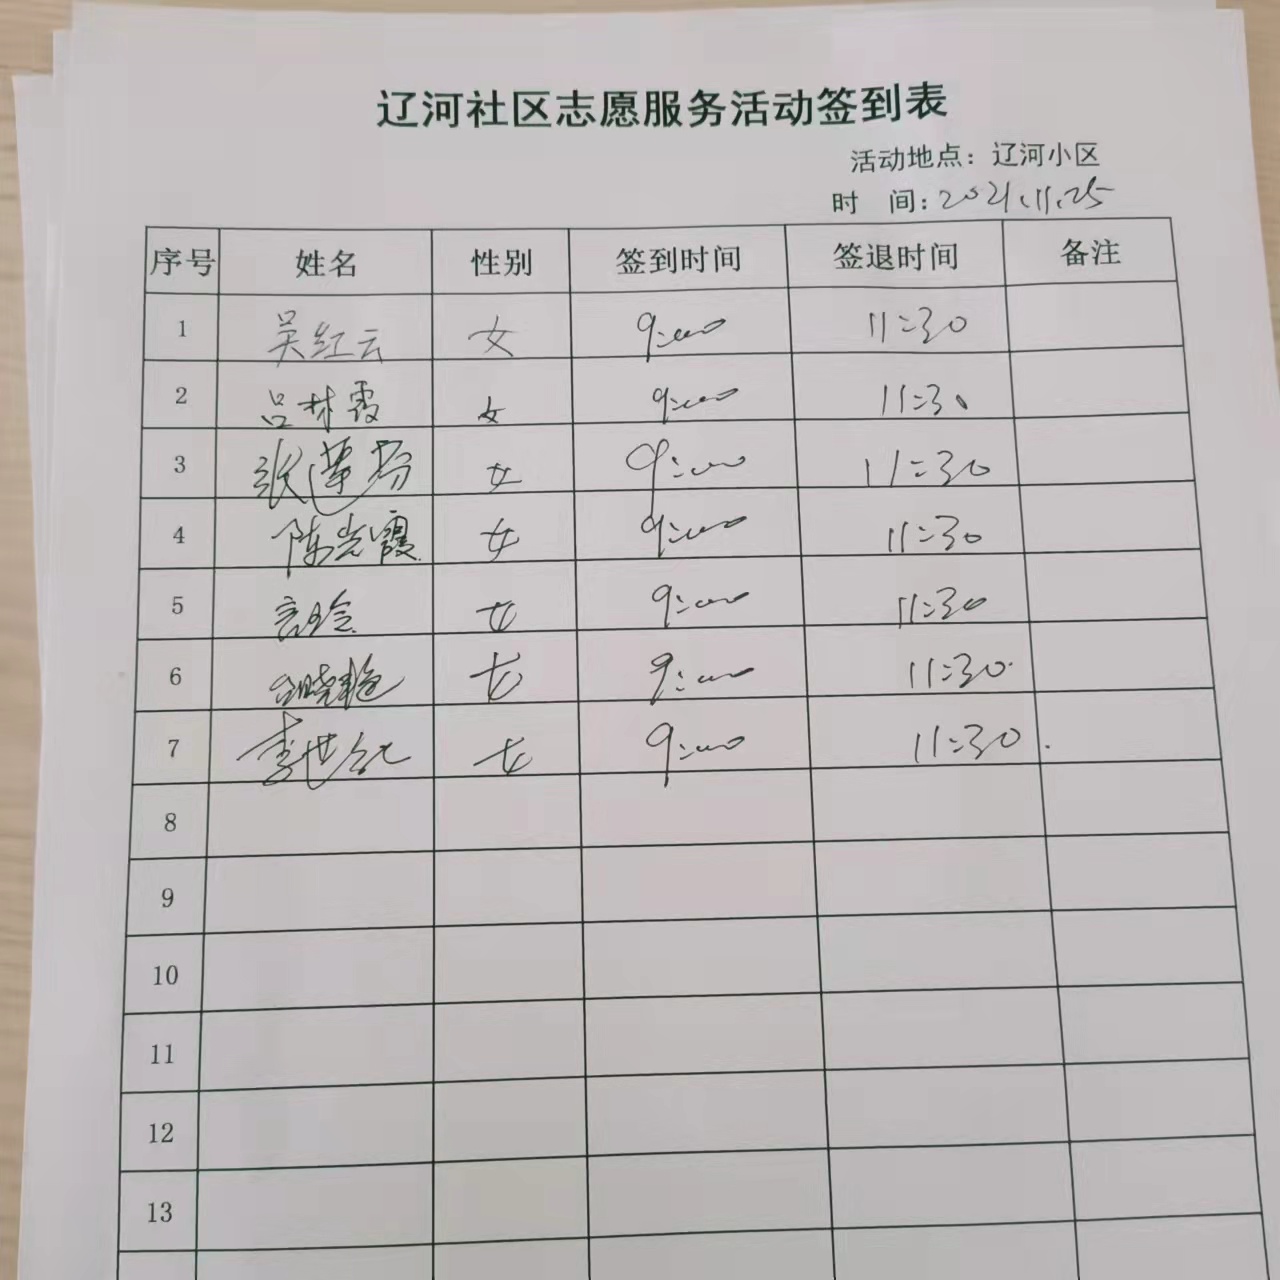 辽河社区志愿服务活动签到表
活动地点：辽河小区
时 间：2021.11.25
序号 姓名 性别 签到时间 签退时间 备注
1 吴红云 女 9:00 11:30
2 吕林霞 女 9:00 11:30
3 张莲芬 女 9:00 11:30
4 陈光霞 女 9:00 11:30
5 女 9:00 11:30
6 女 9:00 11:30
7 李世纪 女 9:00 11:30
8
9
10
11
12
13